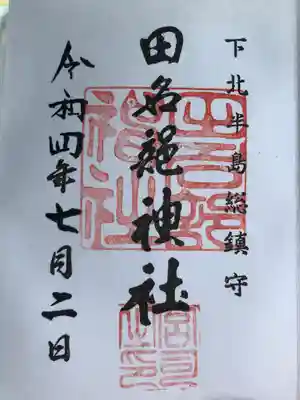 下北半島総鎮守
田名部神社
令和四年七月二日
田名部神社
宮司之印